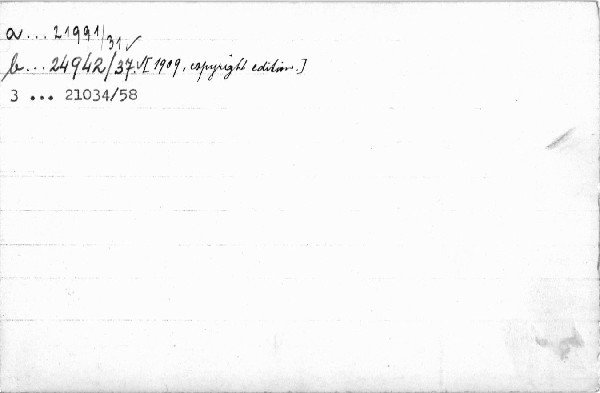 a... 21991/31✓
b... 24942/37.✓[1909, copyright edition.]
3 ... 21034/58